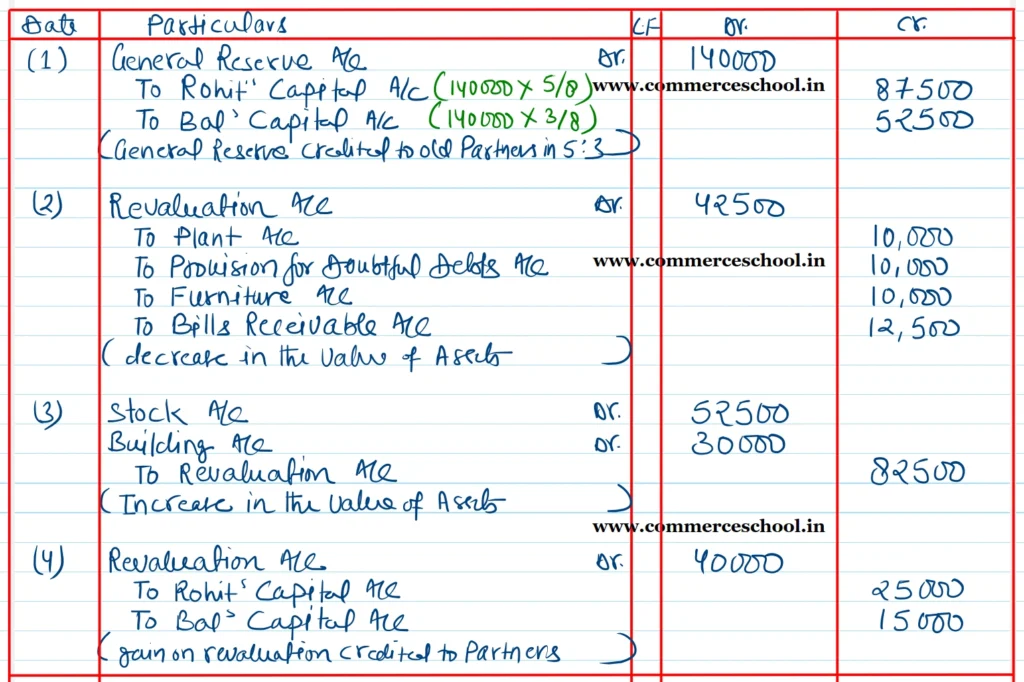 Date Particulars LF Dr. Cr.
(1) General Reserve A/c Dr. 140000
To Rohit's Capital A/c (140000 x 5/8) www.commerceschool.in 87500
To Bal's Capital A/c (140000 x 3/8) 52500
(General Reserve credited to old Partners in 5:3)
(2) Revaluation A/c Dr. 42500
To Plant A/c 10,000
To Provision for Doubtful Debts A/c www.commerceschool.in 10,000
To Furniture A/c 10,000
To Bills Receivable A/c 12,500
(decrease in the value of Assets)
(3) Stock A/c Dr. 52500
Building A/c Dr. 30000
To Revaluation A/c 82500
(Increase in the value of Assets)
www.commerceschool.in
(4) Revaluation A/c Dr. 40000
To Rohit's Capital A/c 25000
To Bal's Capital A/c 15000
(gain on revaluation credited to Partners)